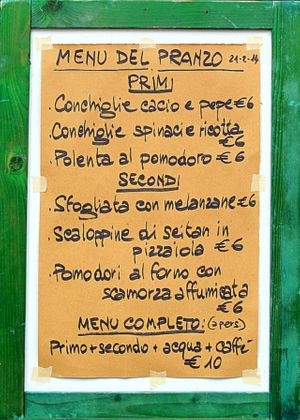 MENU DEL PRANZO 21-2-14
PRIMI
. Conchiglie cacio e pepe €6
. Conchiglie spinaci e ricotta
€6
. Polenta al pomodoro €6
SECONDI
. Sfogliata con melanzane €6
. Scaloppine di seitan in
pizzaiola €6
. Pomodori al forno con
scamorza affumicata
€6
MENU COMPLETO: (a pers)
Primo + secondo + acqua + caffè
€ 10